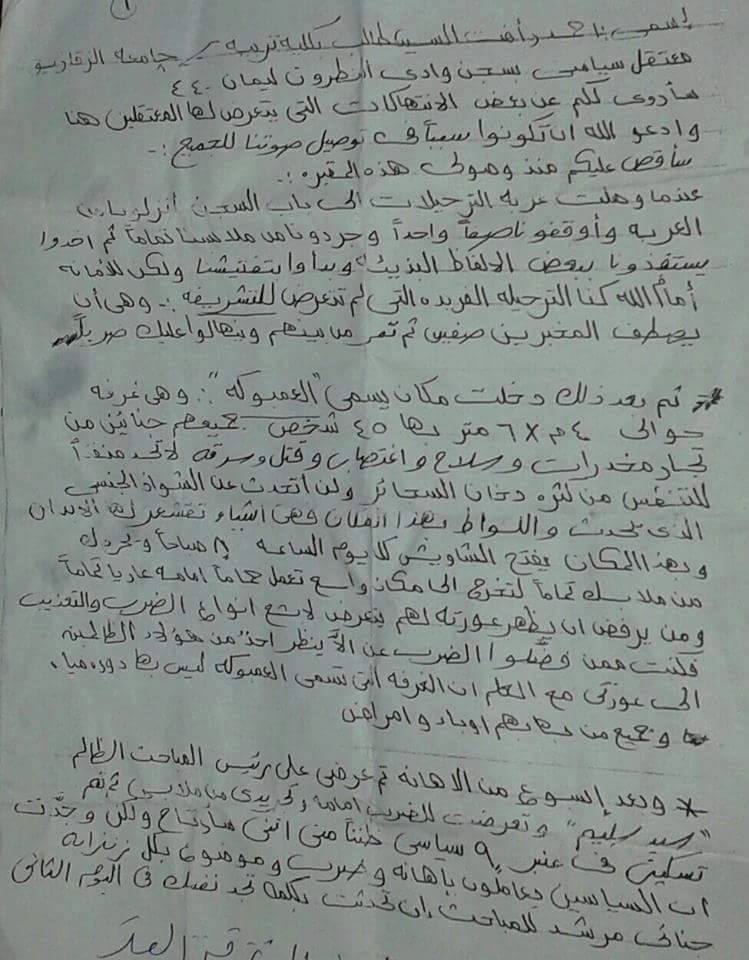 ١
إسمى رأفت السيد طالب بكلية تربيه جامعة الزقازيق
معتقل سياسى بسجن وادى النطرون ليمان ٤٤٠
سأروى لكم عن بعض الانتهاكات التى يتعرض لها المعتقلين هنا
وادعو الله ان تكونوا سبباً فى توصيل صوتنا للجميع :-
سأقص عليكم منذ وصولى هذه المقبره :-
عندما وصلت عربه الترحيلات الى باب السجن أنزلونا من
العربه وأوقفونا صفاً واحداً وجردونا من ملابسنا تماماً ثم اخدوا
يستفذونا ببعض الالفاظ البذيئه وبدأوا بتفتيشنا ولكن للأمانه
أمام الله كنا الترحيله الفريده التى لم تتعرض للتشريفه :- وهى أن
يصطف المخبرين صفين ثم تمر من بينهم وينهالوا عليك ضرباً
* ثم بعد ذلك دخلت مكان يسمى "العمبوكه" :- وهى غرفه
حوالى ٤م × ٦ متر بها ٤٥ شخص جميعهم جنائين من
تجار مخدرات وسلاح واغتصاب وقتل وسرقه لا تجد منفذاً
للتنفس من كثره دخان السجائر ولن اتحدث عن الشواذ الجنسى
الذى يحدث واللواط بهذا المكان وهى اشياء تقشعر لها الأبدان
وبهذا المكان يفتح الشاويش كل يوم الساعه ٨ صباحاً ويجردك
من ملابسك تماماً لتخرج الى مكان واسع تعمل حماماً امامه عارياً تماماً
ومن يرفض ان يظهر عورته لهم يتعرض لابشع انواع الضرب والتعذيب
فكنت ممن فضَّلوا الضرب عن الأ ينظر احدٌ من هؤلاء الظالمين
الى عورتى مع العلم ان الغرفه التى تسمى العمبوكه ليس بها دوره مياه
وجميع من بها بهم اوباء وامراض
* وبعد إسبوع من الاهانه تم عرضى على رئيس المباحث الظالم
"سيد سليم" وتعرضت للضرب امامه وتجريدى من ملابسى ثم تم
تسكينى فى عنبر ٩ سياسى ظنناً منى اننى سأرتاح ولكن وجدت
ان السياسين يعاملون بأهانه وضرب وموضوع بكل زنزانه
جنائى مرشد للمباحث إن تحدثت بكلمه تجد نفسك فى اليوم الثانى